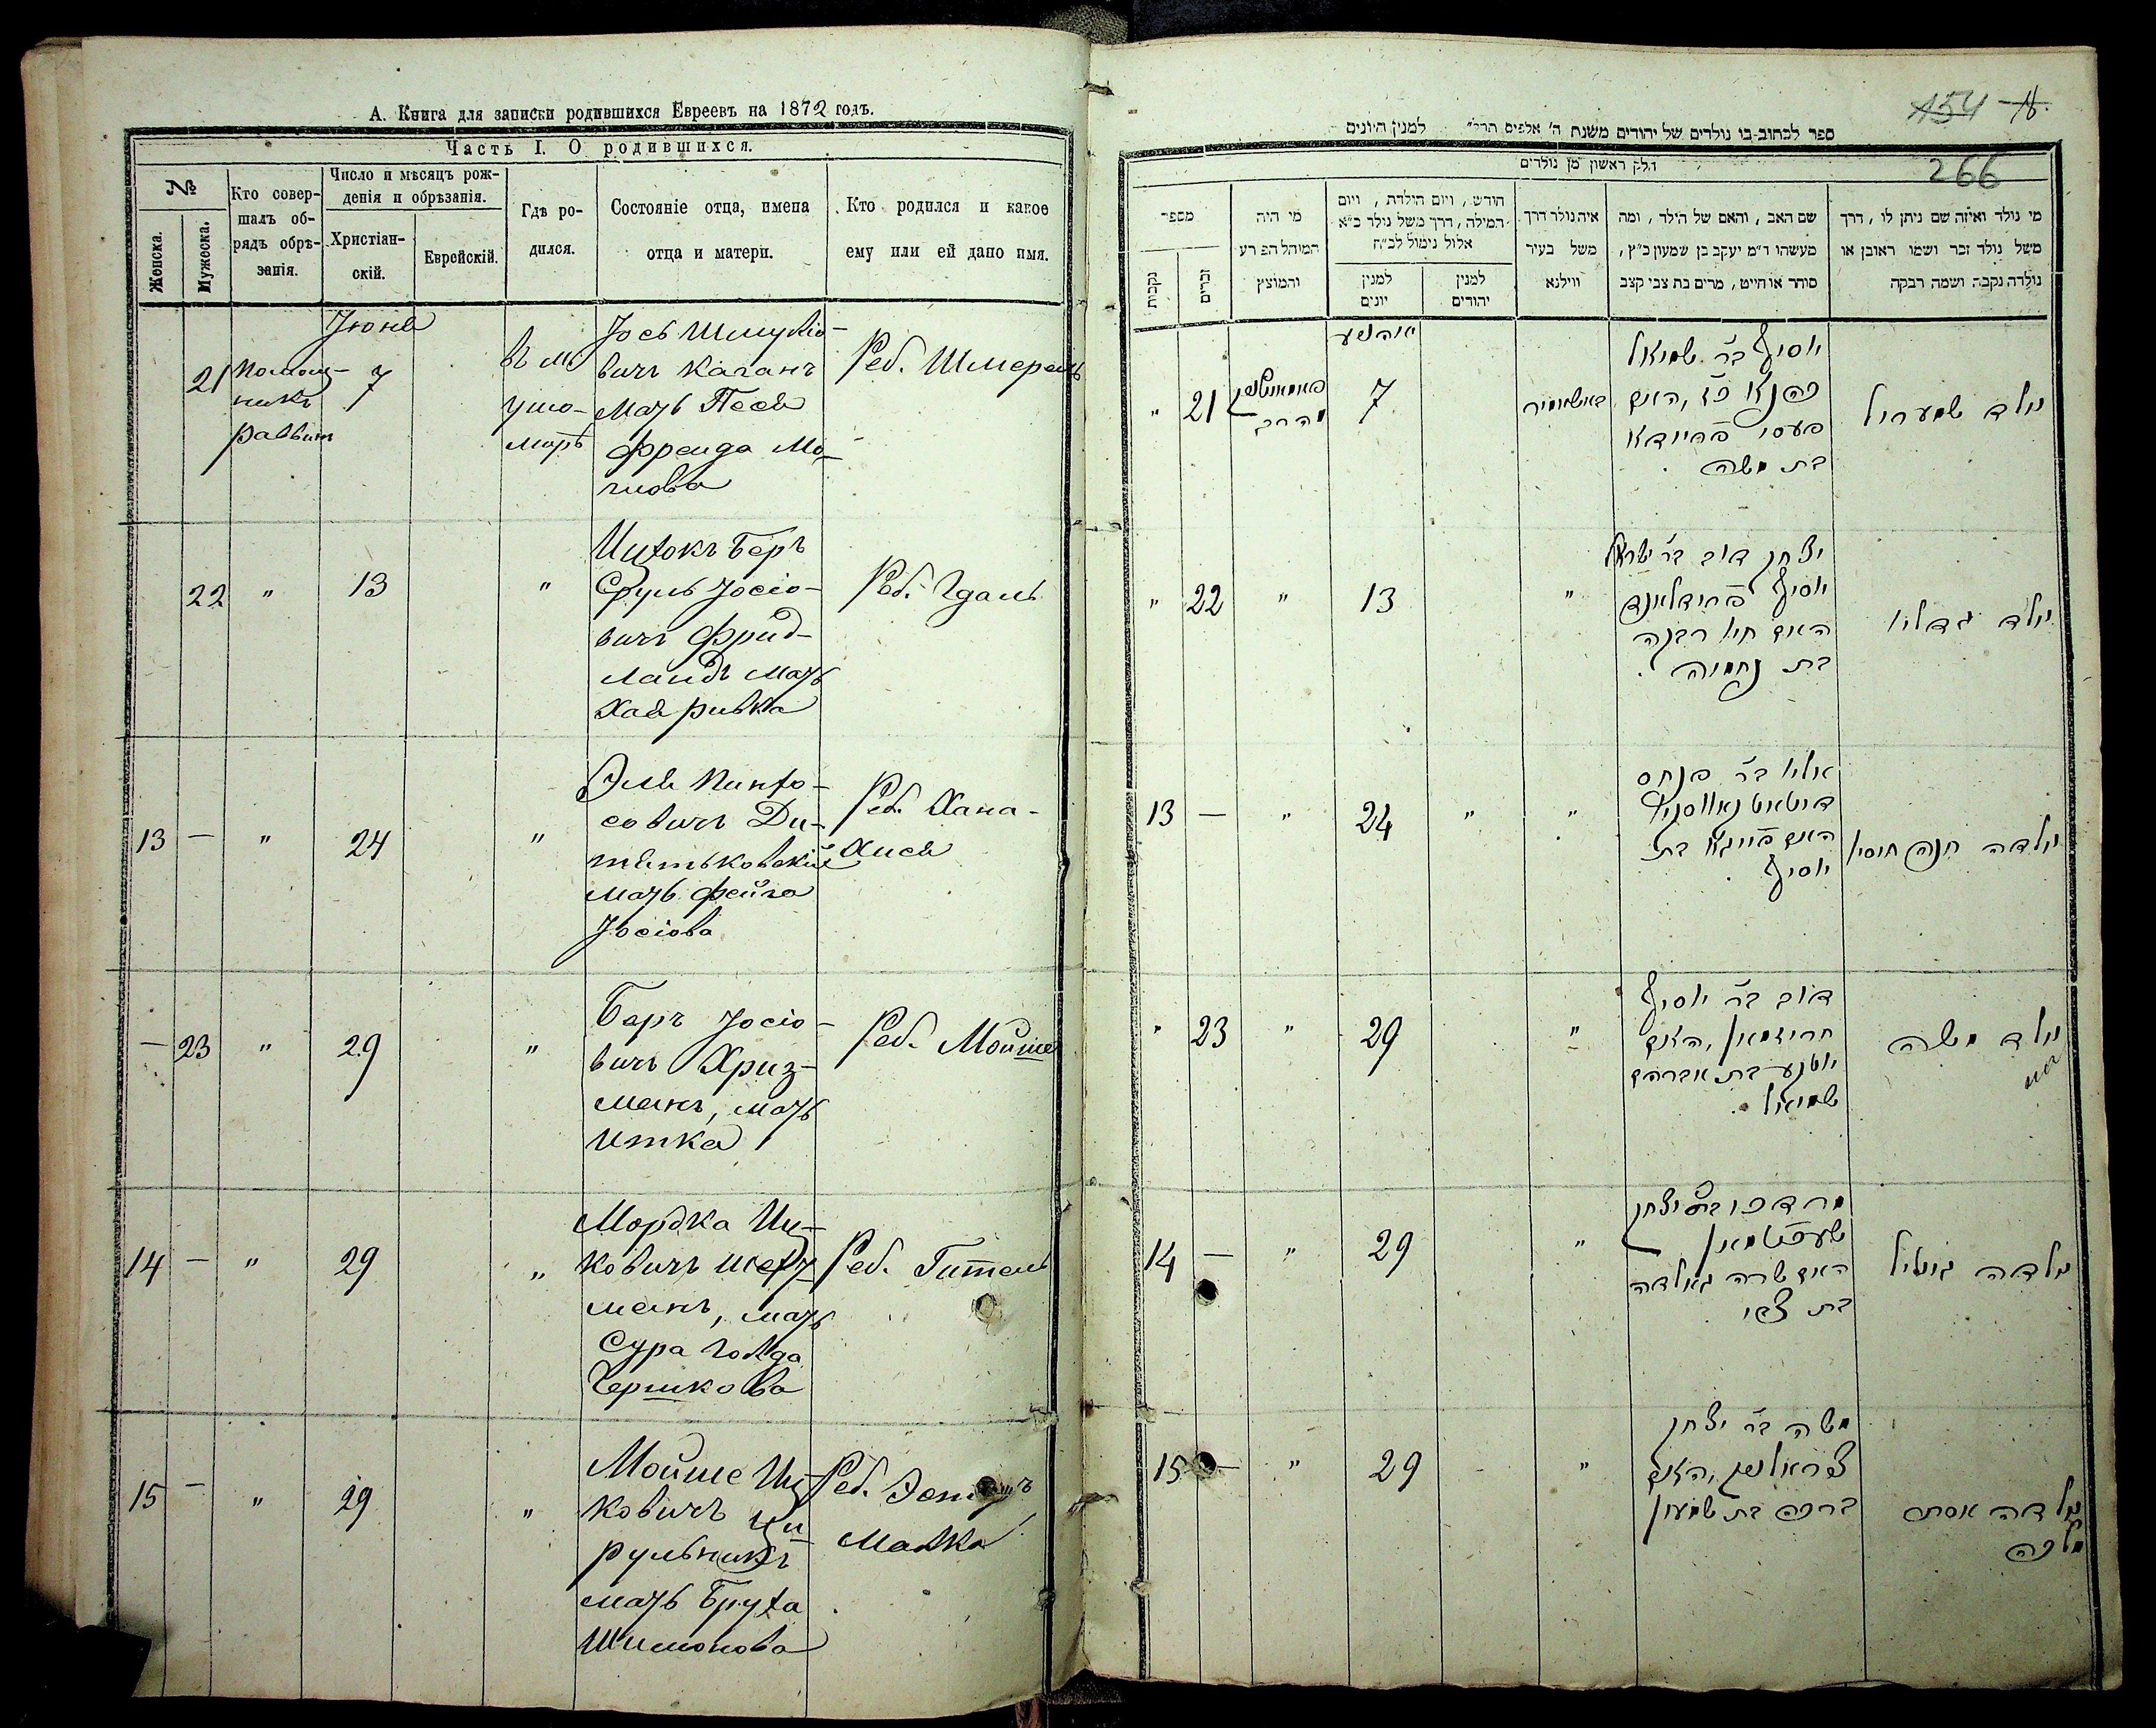 А. Книга для записки родившихся Евреевъ на 1872 годъ.
Часть I. О родившихся.
№
Женска.
Мужеска.
Кто совер-
шалъ об-
рядъ обрѣ-
занія.
Число и мѣсяцъ рож-
денія и обрѣзанія.
Христіан-
скій.
Еврейскій.
Гдѣ ро-
дился.
Состояніе отца, имена
отца и матери.
Кто родился и какое
ему или ей дано имя.
Іюня
21
Помощ-
никъ
раввина
7
въ м.
Ушо-
миръ
Іось Шмуліо-
вичъ Каганъ
мать Песя
Фрейда Мо-
шкова
Реб. Шмерель
22 " 13 "
Ицхокъ Беръ
Сруль Іосіо-
вичъ Фрид-
ландъ мать
Хая Ривка
Реб. Гдаль
13 — " 24 "
Эля Пинхо-
совичъ Ди-
тятьковскій
мать Фейга
Іосіова
Реб. Хана-
Хися
— 23 " 29 "
Беръ Іосіо-
вичъ Хриз-
манъ, мать
Итка
Реб. Мойше
14 — " 29 "
Мордка Иц-
ковичъ
манъ, мать
Сура Голда
Гершкова
Реб. Гитель
15 — " 29 "
Мойше Иц-
ковичъ Ци-
рульникъ
мать Бруха
Шимонова
Реб. Эстеръ
Малка
154 18.
266
ספר לכתוב בו נולדים של יהודים משנת ה' אלפים תרל" למנין היונים
חלק ראשון מן נולדים
מספר
נקבות
זכרים
מי היה
המוהל הפרע
והמוצץ
חודש, ויום הולדת, ויום
המילה, דרך משל נולד כ"א
אלול נימול לכ"ח
למנין
יונים
למנין
יהודים
איה נולד דרך
משל בעיר
ווילנא
שם האב, והאם של הילד, ומה
מעשהו ד"מ יעקב בן שמעון כ"ץ,
סוחר או חייט, מרים בת צבי קצב
מי נולד ואיזה שם ניתן לו, דרך
משל נולד זכר ושמו ראובן או
נולדה נקבה ושמה רבקה
" 21
7
יוסיף בר שמואל
כהנא כץ, האם
פעסי פריידא
בת משה
נולד שמעריל
" 22 " 13 "
יצחק דוב בר ישראל
יוסיף פרידלאנד
האם חיו רבקה
בת נחמיה
נולד גדליו
13 — " 24 " "
אליו בר פנחס
האם פייגא בת
יוסיף
נולדה חנה חיסיו
" 23 " 29 "
דוב בר יוסיף
חריזמאן, האם
יוטקע בת אברהם
שמואל
נולד משה
14 — " 29 "
מרדכי בר יצחק
האם שרה גאלדה
בת צבי
נולדה גיטיל
15 — " 29 "
משה בר יצחק
צירולניק, האם
ברכה בת שמעון
נולדה אסתר
מלכה